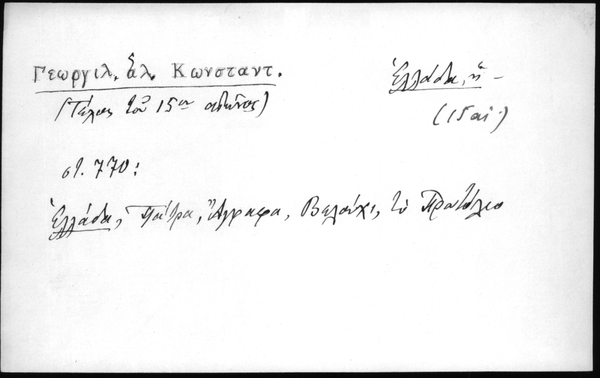 Γεωργιλ. ἁλ. Κωνσταντ.
Ἑλλάδα, ἡ –
(Τέλος τοῦ 15ου αἰῶνος)
(15 αἰ.)
στ. 770:
Ἑλλάδα, Πάτρα, Ἄγραφα, Βελούχι, τὸ